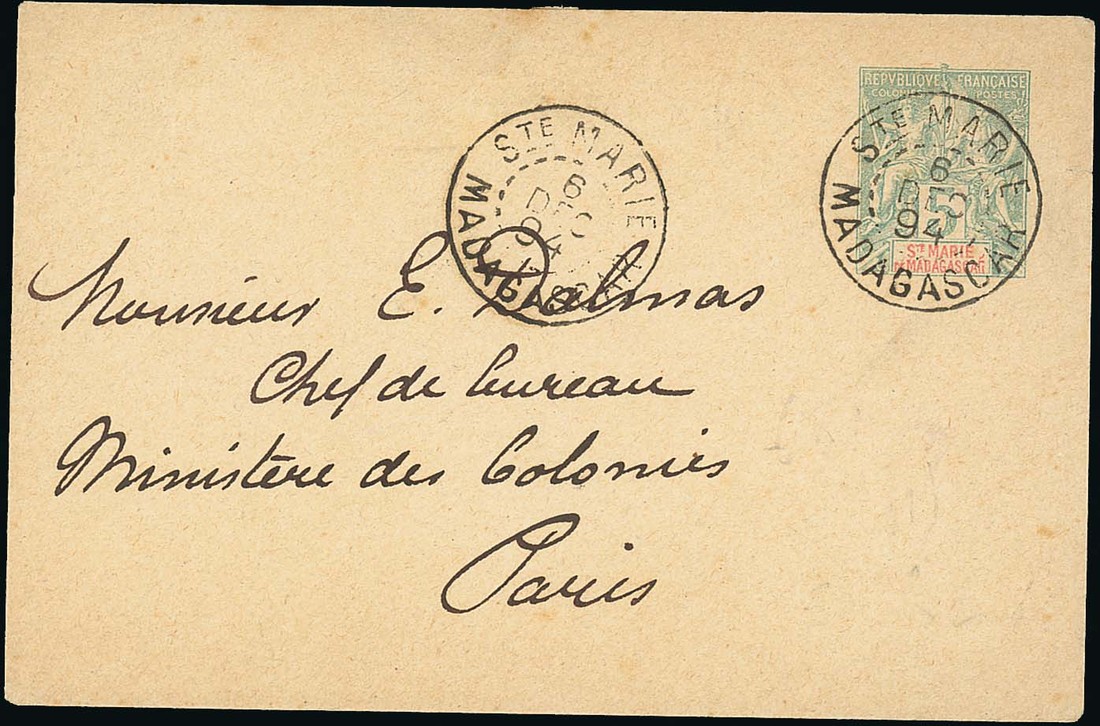 REPVBLIQVE FRANÇAISE
COLONIES POSTES
5
STE MARIE
DE MADAGASCAR
STE MARIE
6
DEC
94
MADAGASCAR
STE MARIE
6
DEC
94
MADAGASCAR
Monsieur E. Dalmas
Chef de bureau
Ministère des Colonies
Paris